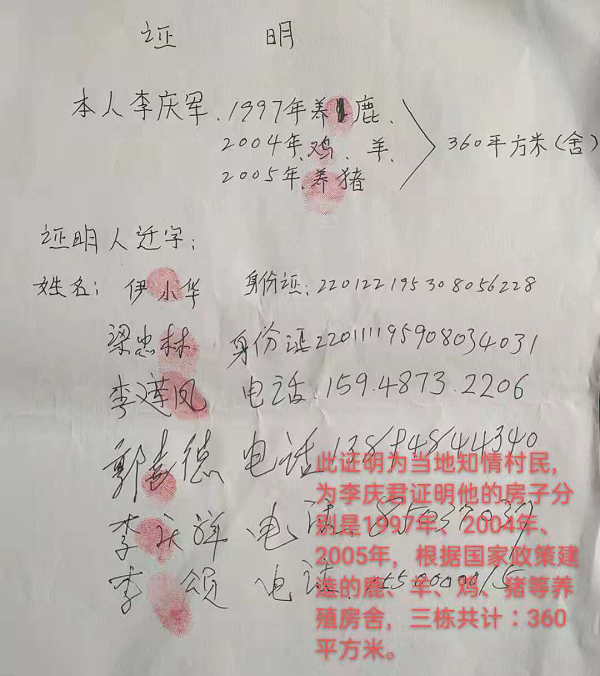 证 明
本人李庆军.1997年养鹿.
2004年.鸡、羊.
2005年.养猪
360平方米(舍)
证明人迁字:
姓名: 伊小华 身份证:220122195308056228
梁忠林 身份证220111195908034031
李莲凤 电话.159.4873.2206
郭喜德 电话
李庆祥 电话
李颂 电话
此证明为当地知情村民,
为李庆君证明他的房子分
别是1997年、2004年、
2005年,根据国家政策建
造的鹿、羊、鸡、猪等养
殖房舍,三栋共计:360
平方米。